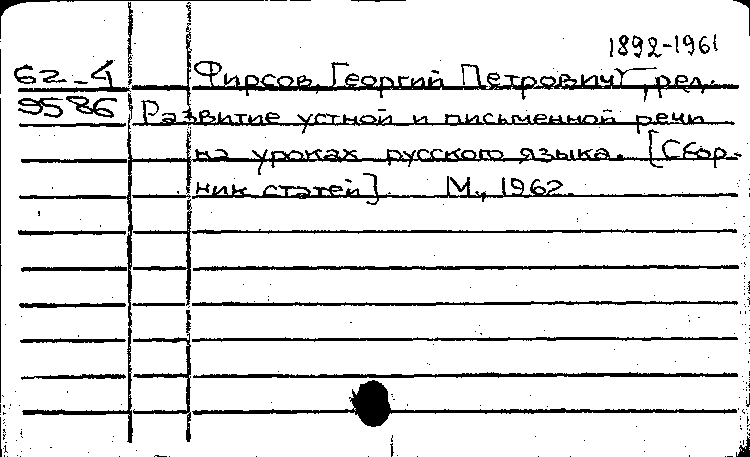 1892-1961
62-4 Фирсов, Георгий Петрович, ред.
9586 Развитие устной и письменной речи
на уроках русского языка. [Сбор-
ник статей] М., 1962.